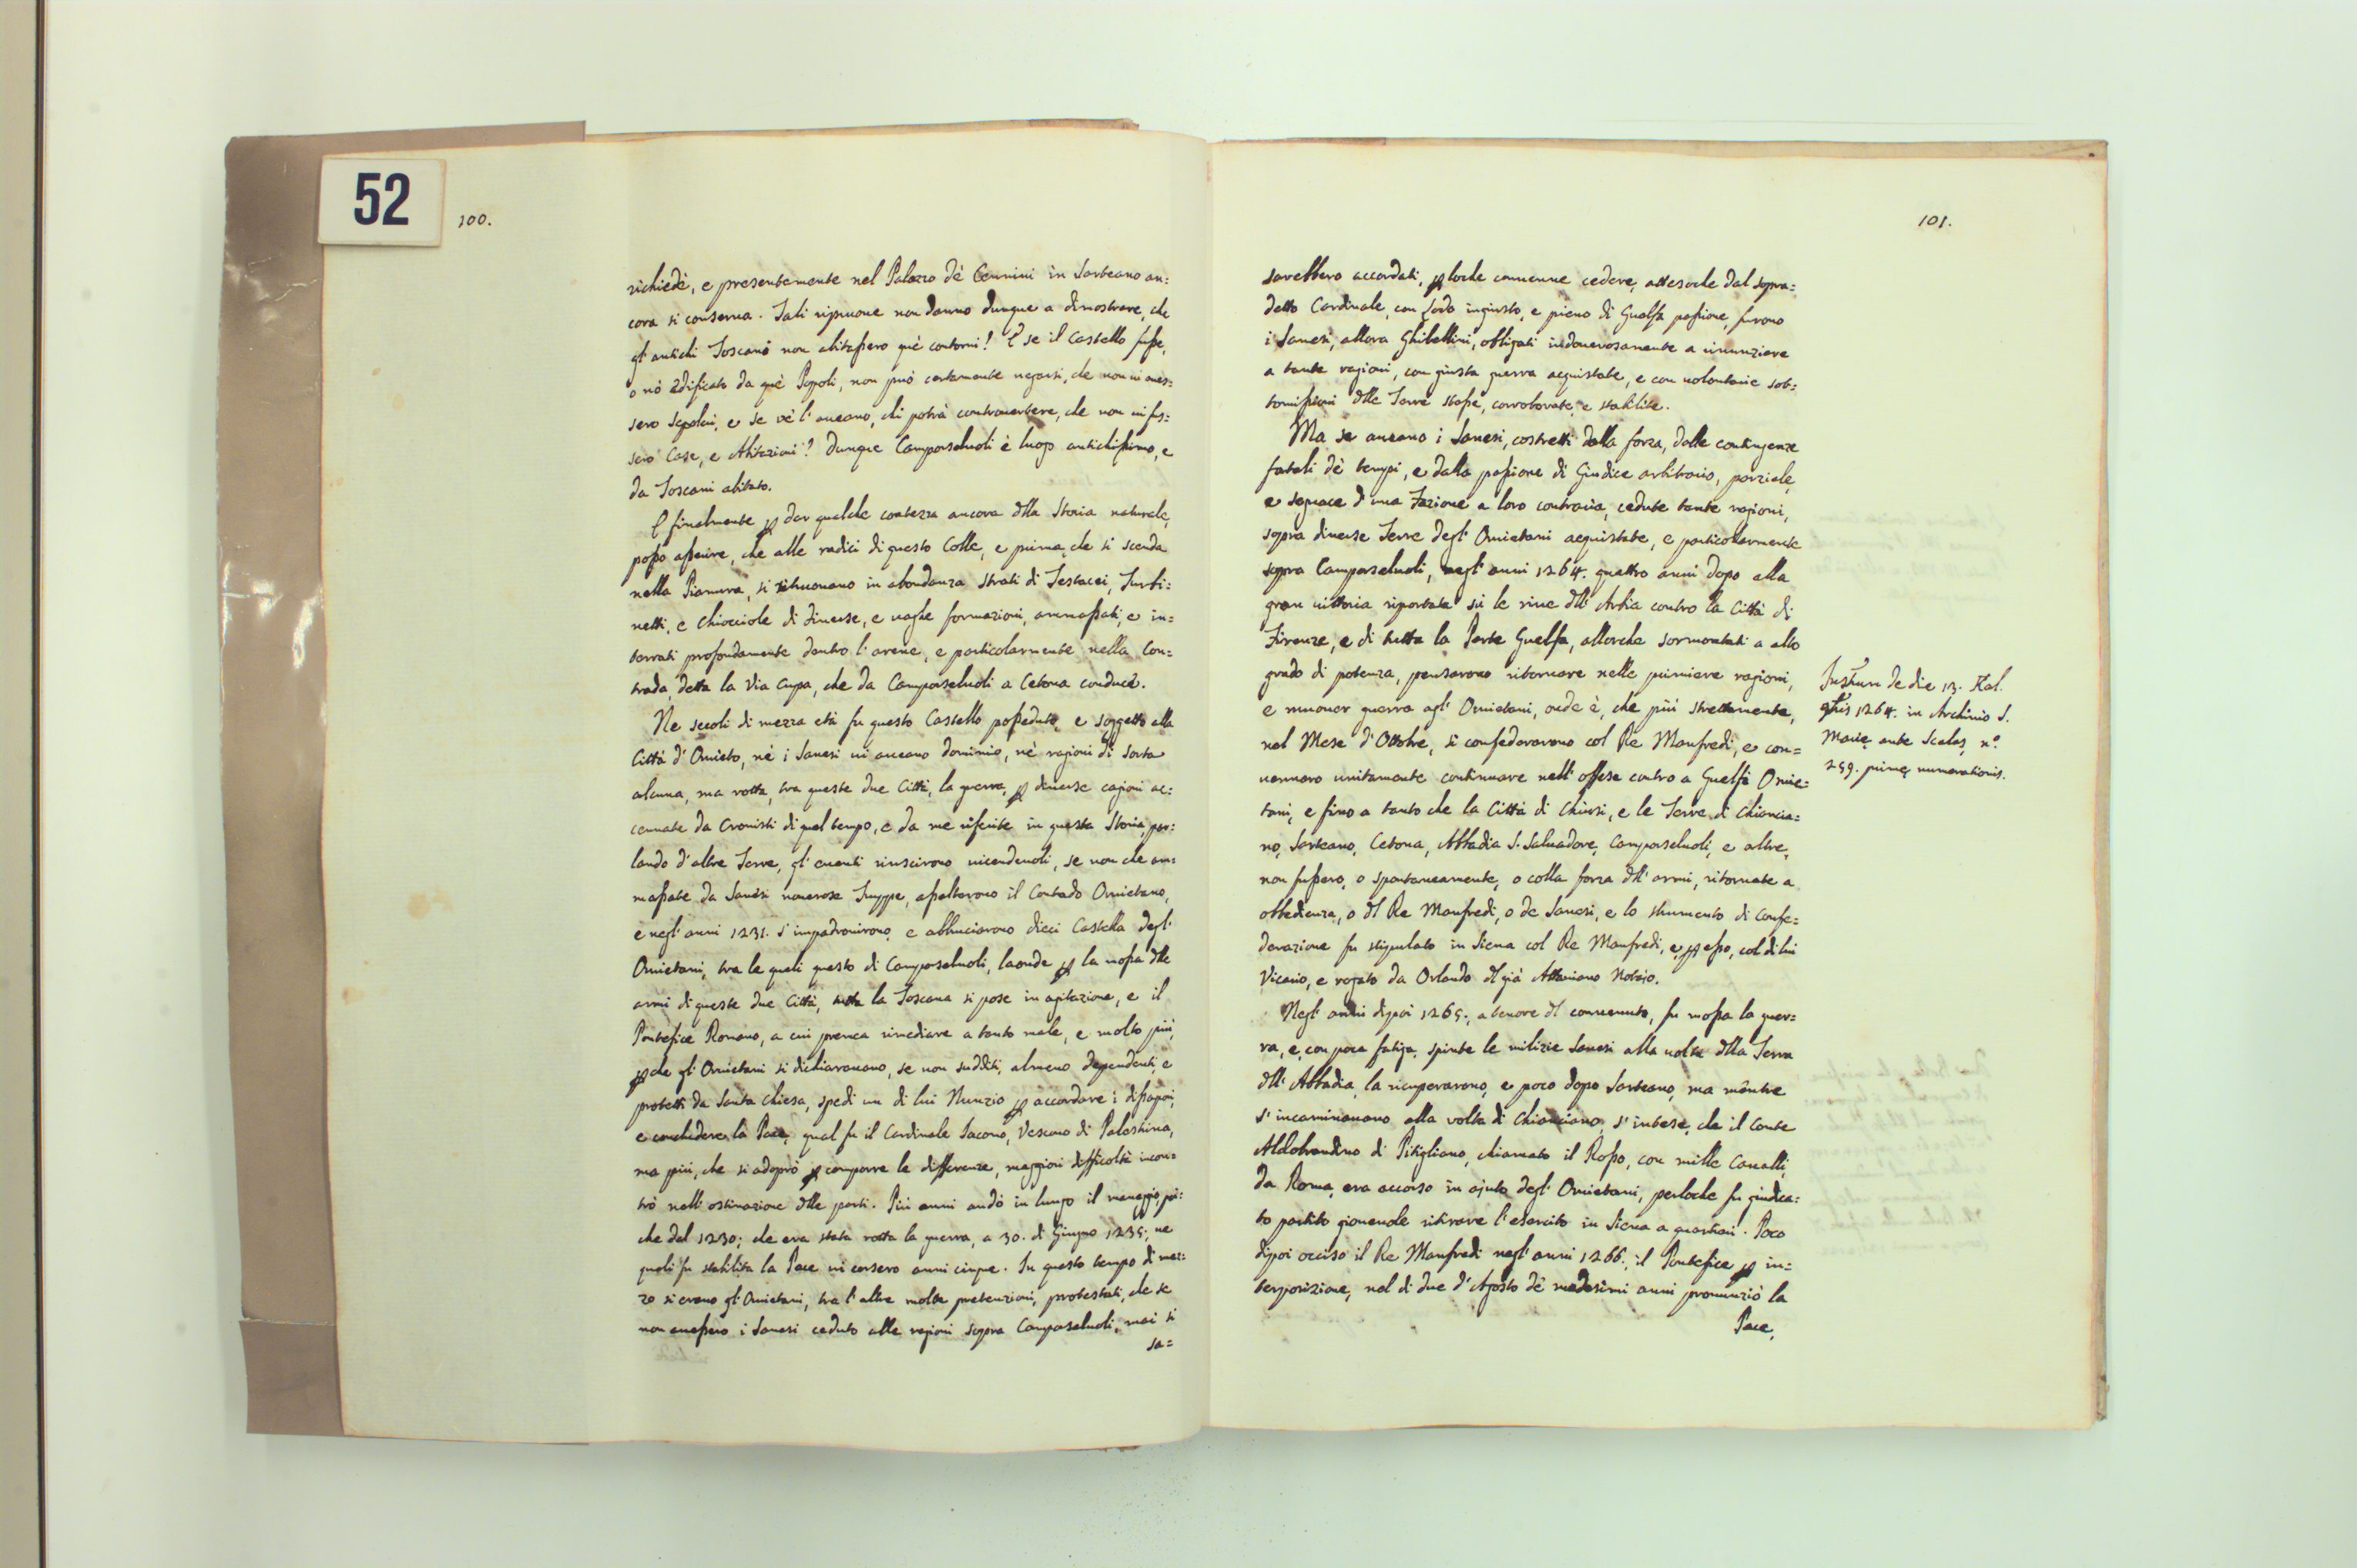 52
100.
richiedè, e presentemente nel Palazzo dè Cennini in Sarteano an=
cora si conserua. Tali ripruoue non danno dunque a dimostrare, che
gl'antichi Toscani non abitassero què contorni! E se il Castello fusse,
o nò Edificato da què Popoli, non può certamente negarsi, che non ui aues=
sero Sepolcri, e se ue l'aueano, chi potrà controuertere, che non ui fus=
sero Case, e Abitazioni? Dunque Camporseluoli è luogo antichissimo, e
da Toscani abitato.
E finalmente ꝑ dar qualche contezza ancora dlla Storia naturale,
posso asserire, che alle radici di questo Colle, e prima, che si scenda
nella Pianura, si ritruouano in abondanza Strati di Testacei, Turbi=
netti, e Chiocciole di diuerse, e uaghe formazioni, ammassati, e in=
terrati profondamente dentro l'arene, e particolarmente nella Con=
trada, detta la Via Cupa, che da Camporseluoli a Cetona conduce.
Ne secoli di mezza età fu questo Castello posseduto, e soggetto alla
Città d'Oruieto, nè i Sanesi ui aueano dominio, nè ragioni di sorta
alcuna, ma rotta, tra queste due Città, la guerra, ꝑ diuerse cagioni ac=
cennate da Cronisti di quel tempo, e da me riferite in questa Storia, par=
lando d'altre Terre, gl'euenti riuscirono uicendeuoli, se non che am=
massate da Sanesi numerose Truppe, assaltarono il Contado Oruietano,
e negl'anni 1231. s'impadronirono, e abbruciarono dieci Castella degl'
Oruietani, tra le quali questo di Camporseluoli, laonde ꝑ la mossa dlle
armi di queste due Città, tutta la Toscana si pose in agitazione, e il
Pontefice Romano, a cui premea rimediare a tanto male, e molto più,
ꝑche gl'Oruietani si dichiarauano, se non sudditi, almeno dependenti, e
protetti da Santa Chiesa, spedì un di lui Nunzio ꝑ accordare i dissapori,
e concludere la Pace, qual fu il Cardinale Iacomo, Vescouo di Palestrina,
ma più, che si adoprò ꝑ comporre le differenze, maggiori difficoltà incon=
trò nell'ostinazione dlle parti. Più anni andò in lungo il maneggio, poi=
che dal 1230; che era stata rotta la guerra, a 30. di Giugno 1235; ne
quali fu stabilita la Pace ui corsero anni cinque. In questo tempo di mez=
zo si erano gl'Oruietani, tra l'altre molte pretenzioni, protestati, che se
non auessero i Sanesi ceduto alle ragioni sopra Camporseluoli, mai si
sa=
101.
sarebbero accordati, ꝑ loche conuenne cedere, attesoche dal sopra=
detto Cardinale, con Lodo ingiusto, e pieno di Guelfa passione, furono
i Sanesi, allora Ghibellini, obbligati indouerosamente a rinunziare
a tante ragioni, con giusta guerra acquistate, e con uolontarie sot=
tomissioni dlle Terre stesse, corroborate, e stabilite.
Ma se aueano i Sanesi, costretti dalla forza, dalle contingenze
fatali dè tempi, e dalla passione di Giudice arbitrario, parziale,
e seguace d'una Fazione a loro contraria, cedute tante ragioni,
sopra diuerse Terre degl'Oruietani acquistate, e particolarmente
sopra Camporseluoli, negl'anni 1264. quattro anni dopo alla
gran uittoria riportata sù le riue dll'Arbia contro la Città di
Firenze, e di tutta la Parte Guelfa, allorche sormontati a alto
grado di potenza, pensarono ritornare nelle primiere ragioni,
e muouer guerra agl'Oruietani, onde è, che più strettamente,
nel Mese d'Ottobre, si confederarono col Re Manfredi, e con=
uennero unitamente continuare nell'offese contro a Guelfi Oruie=
tani, e fino a tanto che la Città di Chiusi, e le Terre di Chiancia=
no, Sarteano, Cetona, Abbadia S. Saluadore, Camporseluoli, e altre,
non fussero, o spontaneamente, o colla forza dll'armi, ritornate a
obbedienza, o dl Re Manfredi, o de Sanesi, e lo strumento di Confe=
derazione fu stipulato in Siena col Re Manfredi, e, ꝑ esso, col di lui
Vicario, e rogato da Orlando dl già Attauiano Notaio.
Negl'anni dipoi 1265., a tenore dl conuenuto, fu mossa la guer=
ra, e, con poca fatiga, spinte le milizie Sanesi alla uolta dlla Terra
dll'Abbadia, la ricuperarono, e poco dopo Sarteano, ma mentre
s'incaminauano alla volta di Chianciano, s'intese, che il Conte
Aldobrandino di Pitigliano, chiamato il Rosso, con mille Caualli,
da Roma, era accorso in ajuto degl'Oruietani, perloche fu giudica=
to partito gioueuole ritirare l'esercito in Siena a quartieri. Poco
dipoi occiso il Re Manfredi negl'anni 1266., il Pontefice ꝑ in=
terposizione, nel dì due d'Agosto dè medesimi anni pronunziò la
Pace,
Instrum de die 13. Kal.
9bris 1264. in Archiuio S.
Marię ante Scalas, n.º
259. primę numerationis.